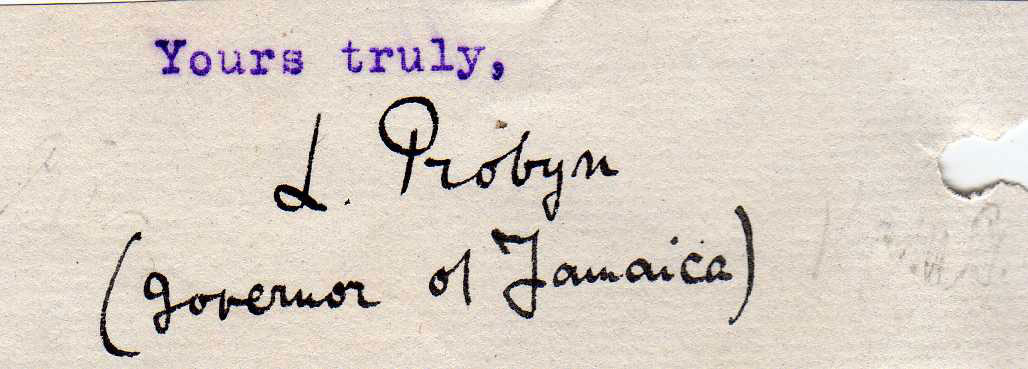 Yours truly,
L. Probyn
(Governor of Jamaica)